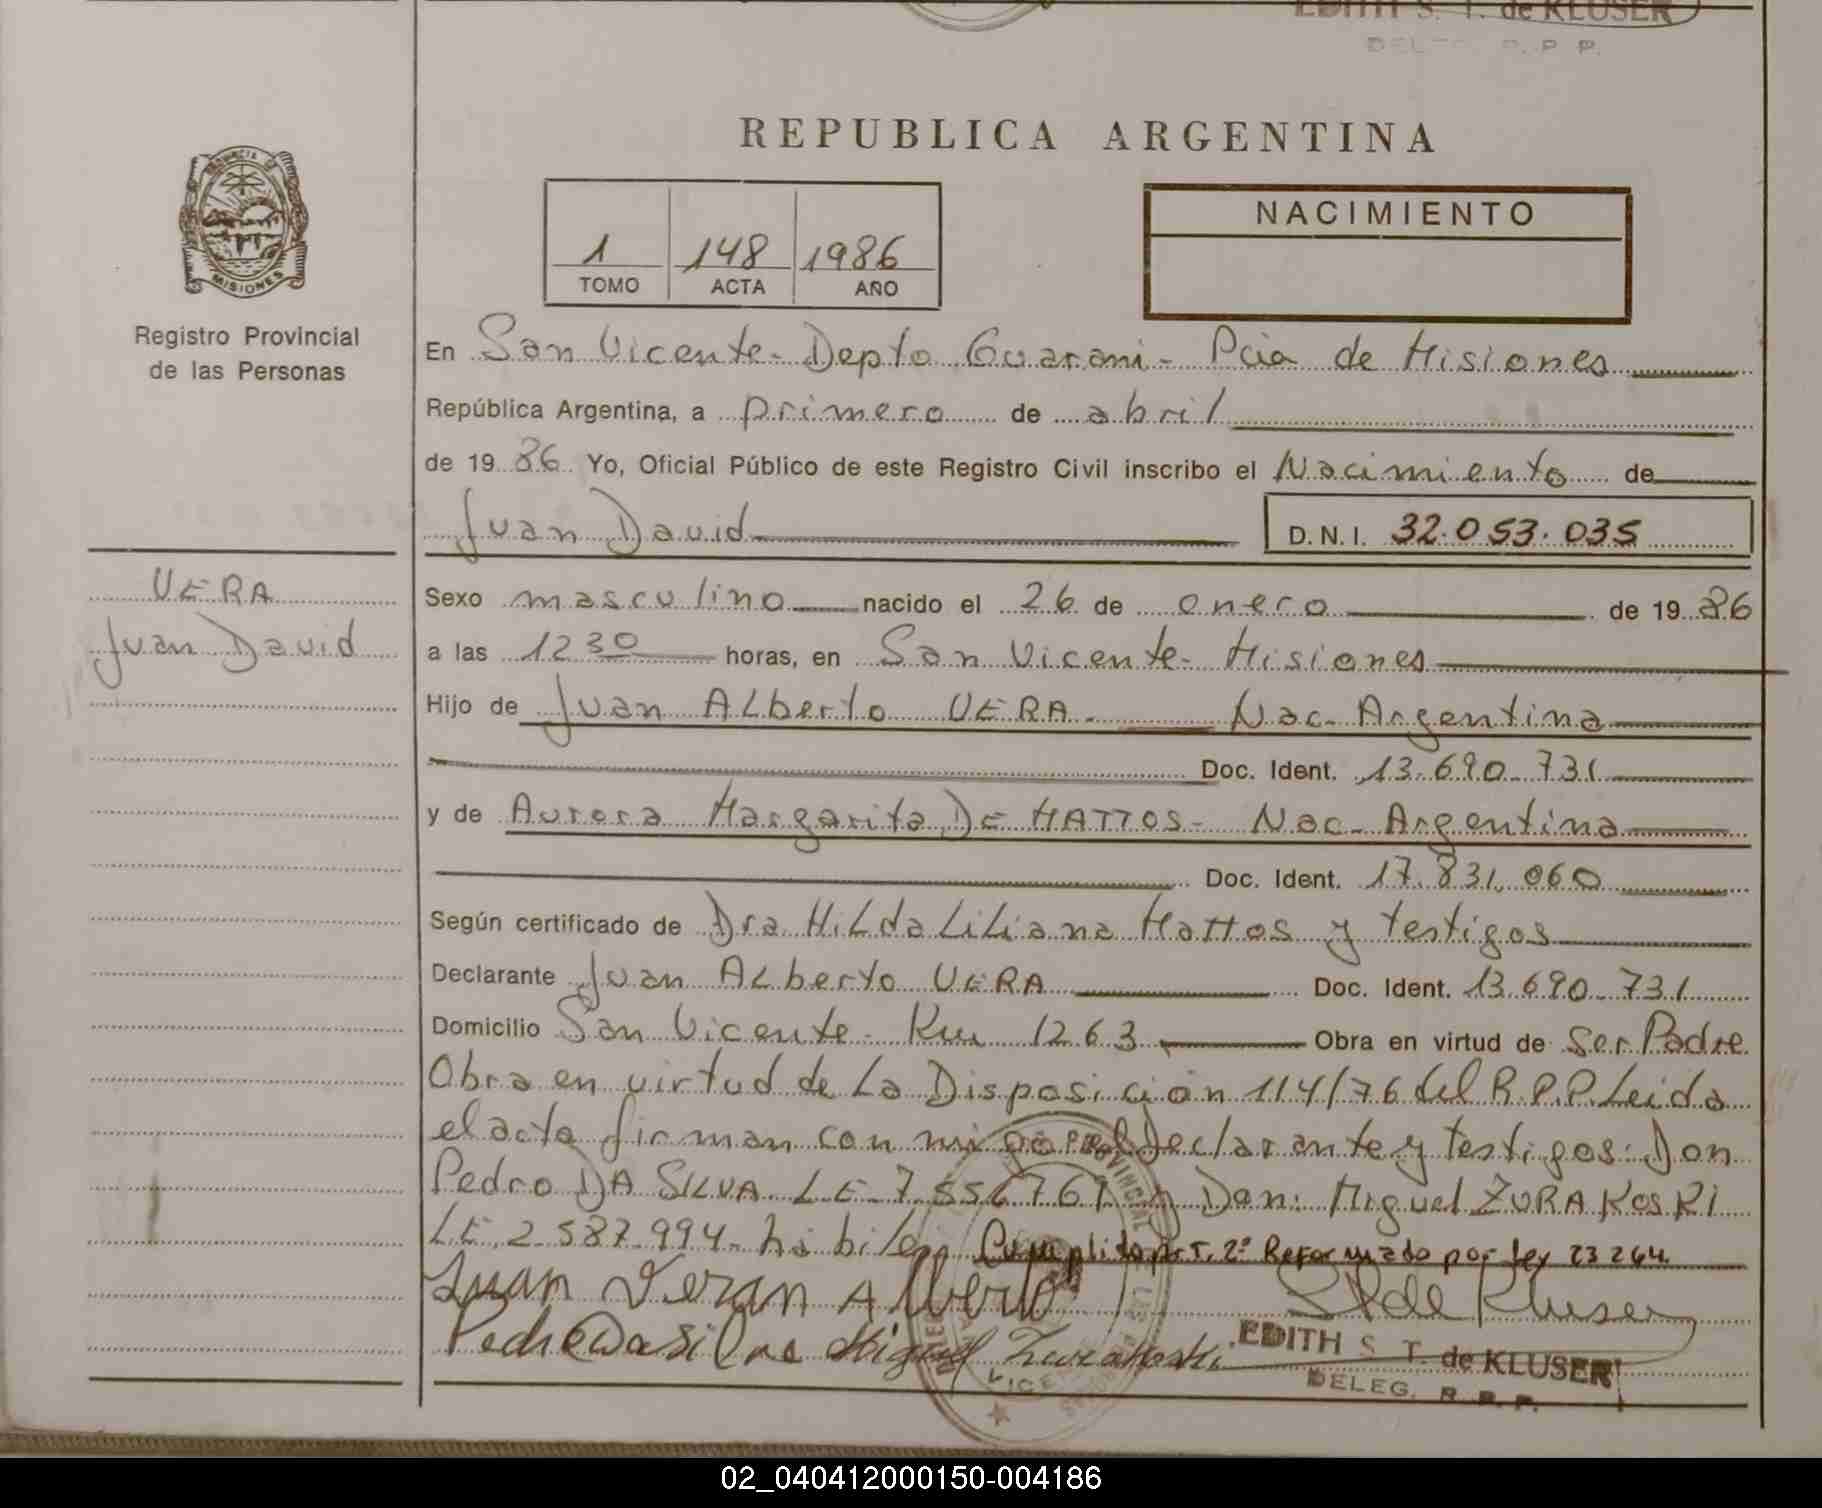 EDITH S. T. de KLUSER
DELEG. R. P. P.
REPUBLICA ARGENTINA
PROVINCIA DE
MISIONES
Registro Provincial
de las Personas
1 148 1986
TOMO ACTA AÑO
NACIMIENTO
En San Vicente - Depto Guarani - Pcia de Misiones
República Argentina, a primero de abril
de 19 86 Yo, Oficial Público de este Registro Civil inscribo el Nacimiento de
Juan David D.N.I. 32.053.035
VERA
Juan David
Sexo masculino nacido el 26 de enero de 19 86
a las 12 30 horas, en San Vicente - Misiones
Hijo de Juan ALberto VERA - Nac- Argentina
Doc. Ident. 13.690-731
y de Aurora Margarita DE MATTOS - Nac- Argentina
Doc. Ident. 17.831.060
Según certificado de Dra HiLda LiLiana Mattos y testigos
Declarante Juan ALberto VERA Doc. Ident. 13.690-731
Domicilio San Vicente - Km 1263 Obra en virtud de Ser Padre
Obra en virtud de La Disposición 114/76 del R.P.P. Leida
el acta firman con migo el declarante y testigos: Don
Pedro DA SILVA LE-7.556761 y Don: Miguel ZURAKOSKI
LE 2-587.994- hábiles Cumplido Art. 2º Reformado por Ley 23264.
Juan Veran Alberto
Pedro Da Silva Miguel Zurakoski
EDITH S. T. de KLUSER
DELEG. R. P. P.
02_040412000150-004186